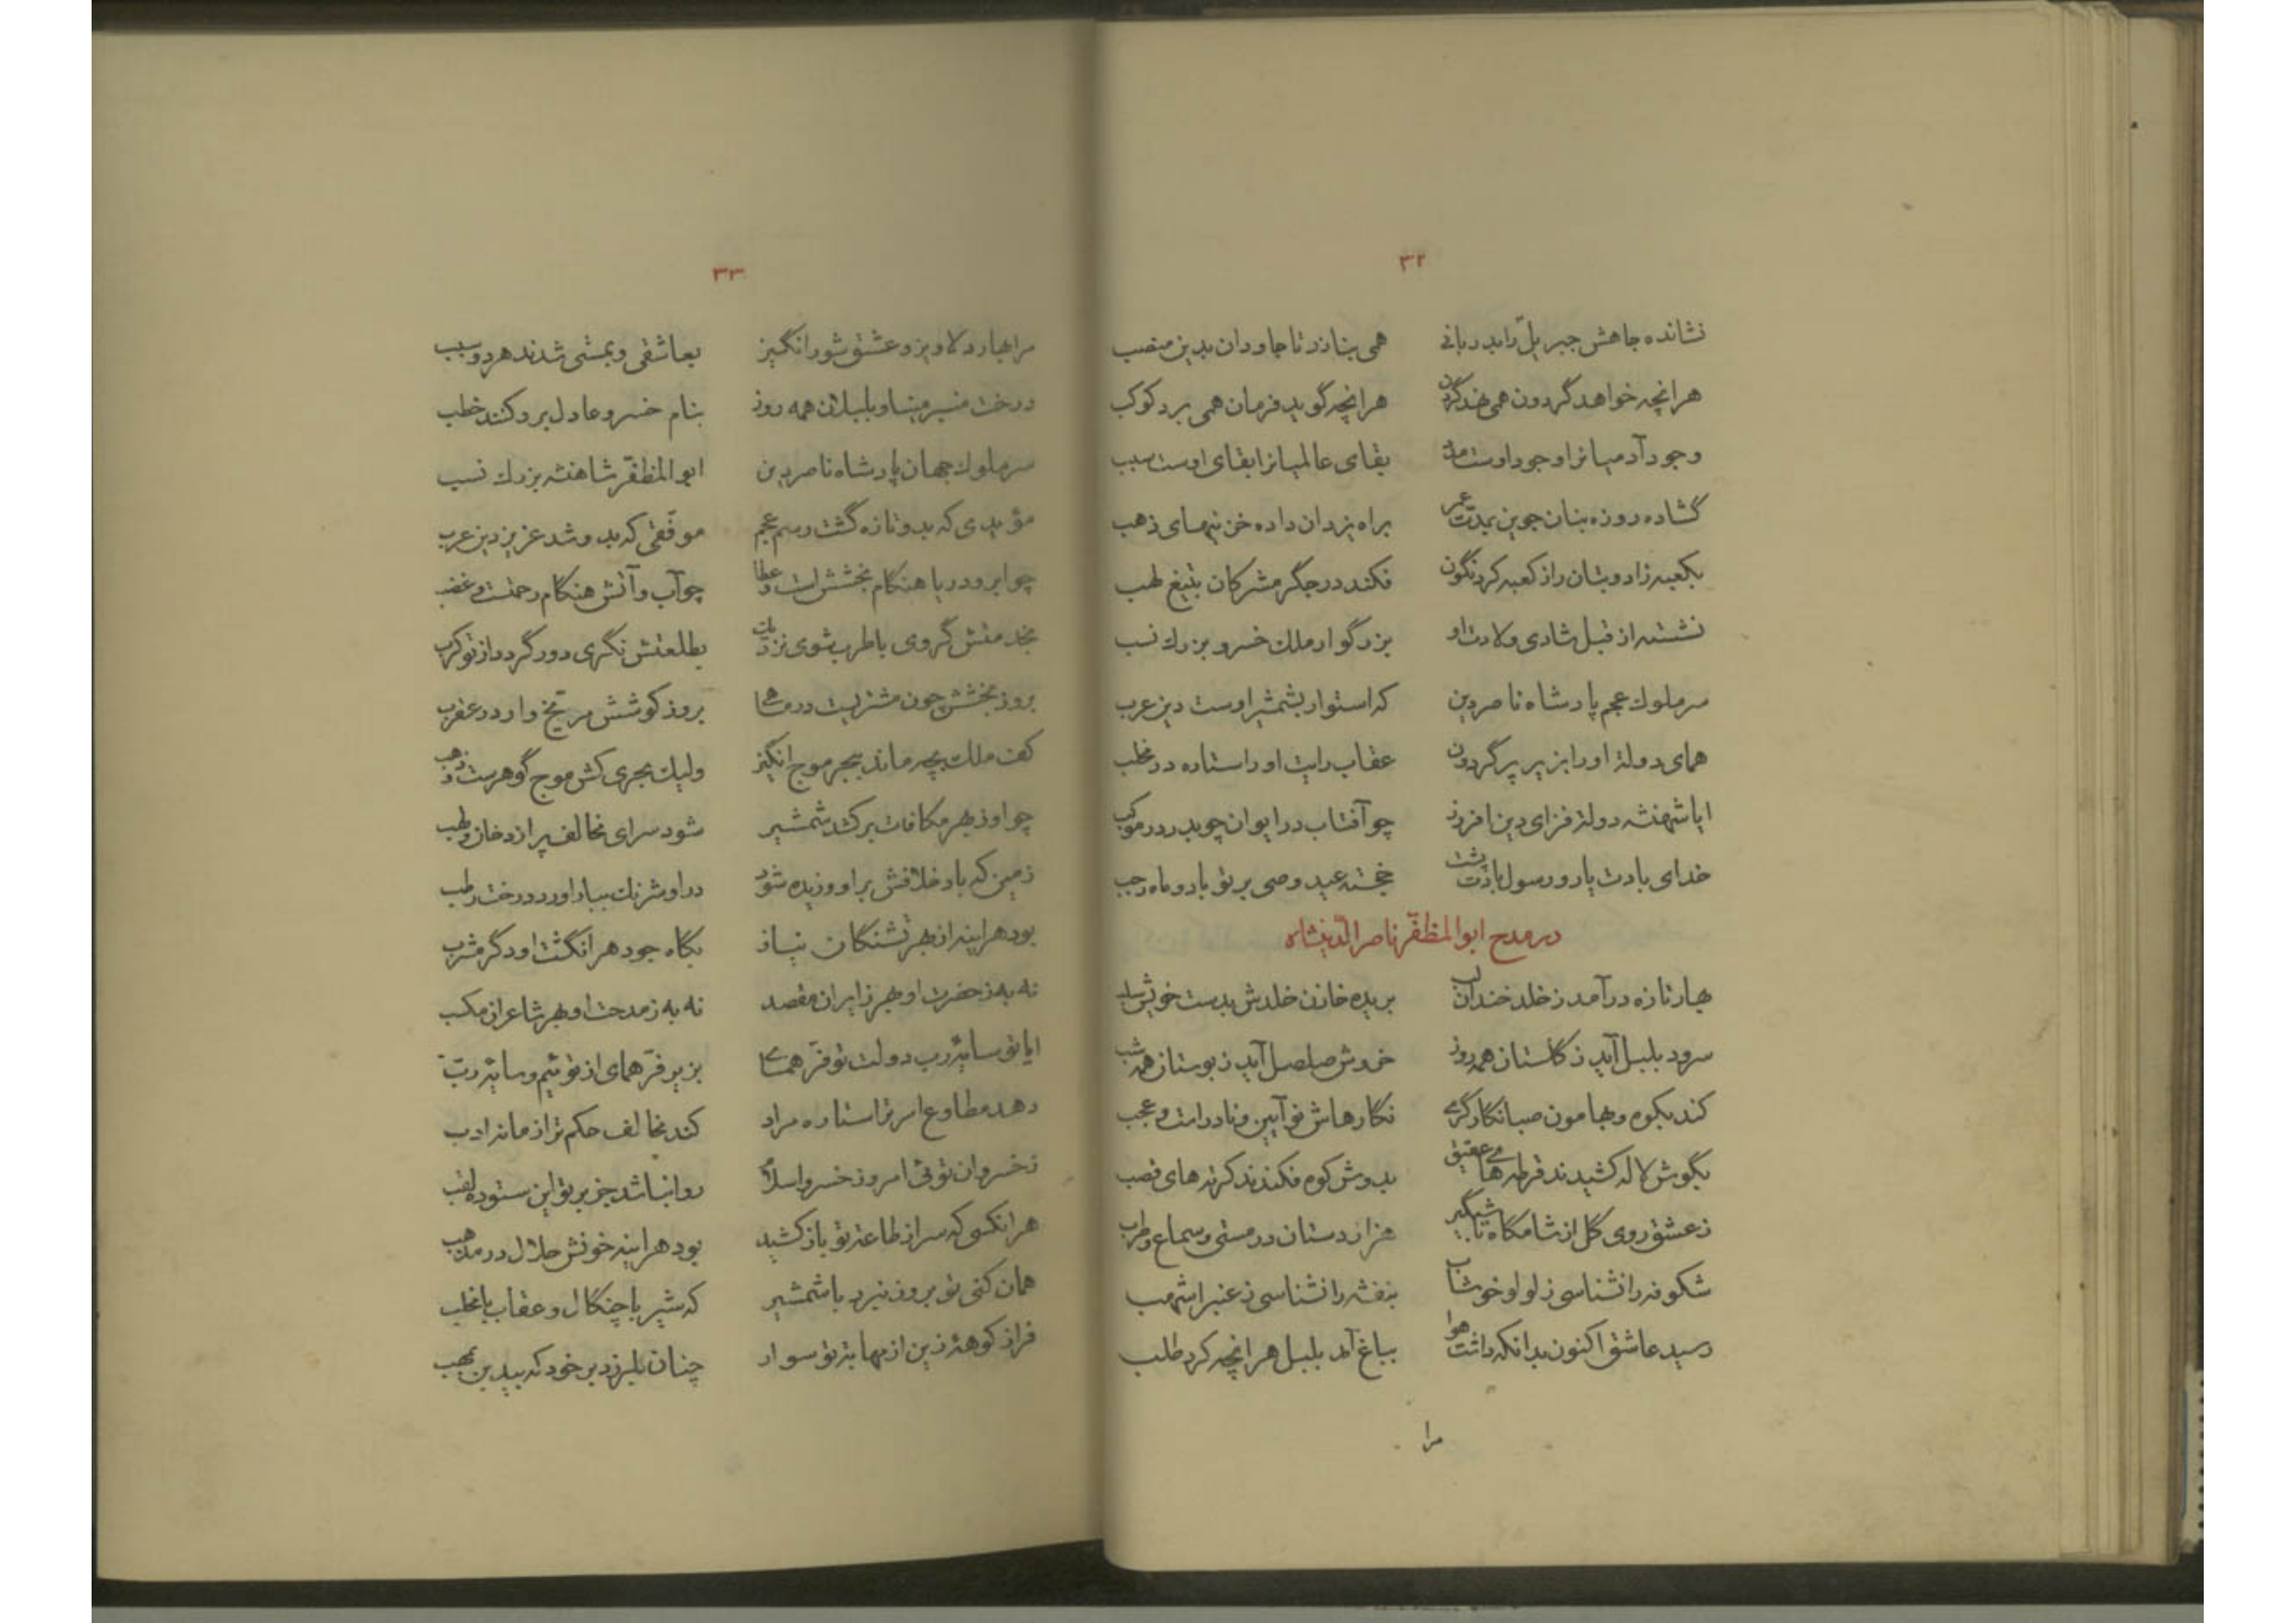 ۳۲
نشانده جاهش جبریل را بدربانی همی بنازد تا جاودان بدین منصب
هرانچه خواهد گردون همی نهد گردن هرانچه گوید فرمان همی برد کوکب
وجود آدمیانرا وجود اوست بقای عالمیانرا بقای اوست سبب
گشاده روزه بنان جوین بمدّت عمر براه یزدان داده خزینهای ذهب
بکعبه زاد و بتان را ز کعبه کرد نگون فکند در جگر مشرکان بتیغ لهب
نشسته از قبل شادی ولادت او بزرگوار ملک خسرو بزرک نسب
سر ملوک عجم پادشاه ناصر دین که استوار بشمشیر اوست دین عرب
همای دولة او را بزیر پر گردون عقاب رایت او را ستاره در مخلب
ایا شهنشه دولة فزای دین افروز چو آفتاب در ایوان چو بدر در موکب
خدای بادت یار و رسول بادت پشت خجسته عید وصی بر تو باد و ماه رجب
در مدح ابوالمظفّر ناصرالدّینشاه
بهار تازه درآمد ز خلد خندان لب بریده خازن خلدش بدست خویش سلب
سرود بلبل آید ز گلستان همه روز خروش صلصل آید ز بوستان همه شب
کند بکوه و بهامون صبا نکارگری نگارهاش نو آیین و نادرات و عجب
بگوش لاله کشیدند قرطهای عقیق بدوش کوه فکندند کرتهای قصب
ز عشق روی گل از شامگاه تا شبگیر هزاردستان در مستی و سماع و طرب
شکوفه را نشناسی ز لولو خوشاب بنفشه را نشناسی ز عنبر اشهب
رسید عاشق اکنون بدانکه داشت هوا بباغ آمد بلبل هرانچه کرد طلب
مرا
۳۳
مرا بهار دلاویز و عشق شورانگیز بعاشقی و بمستی شدند هر دو سبب
درخت منبر مینا و بلبلان همه روز بنام خسرو عادل برو کنند خطب
سر ملوک جهان پادشاه ناصر دین ابوالمظفّر شاهنشه بزرک نسب
مؤیدی که بدو تازه گشت رسم عجم موفّقی که بدو شد عزیز دین عرب
چو ابر و دریا هنگام بخشش است و عطا چو آب و آتش هنگام رحمت و غضب
بخدمتش گروی با طرب شوی نزدیک بطلعتش نگری دور گردد از تو کرب
بروز بخشش چون مشتریست در ماهی بروز کوشش مریّخ وار در عقرب
کف ملک بچه ماند ببحر موج انگیز ولیک بحری کش موج گوهرست و ذهب
چو او ز بهر مکافات برکشد شمشیر شود سرای مخالف پر از دخان و لهب
زمین که باد خلافش براو وزیده شود درو شرنک ببار اورد درخت رطب
بود هراینه از بهر تشنگان نیاز بگاه جود هر انگشت او دگر مشرب
نه به ز حضرت او بهر زایران مقصد نه به ز مدحت او بهر شاعران مکسب
ایا تو سایهٔ رب دولت تو فرّ همای بزیر فرّ همای از توئیم و سایهٔ ربّ
دهد مطاوع امر ترا ستاره مراد کند مخالف حکم ترا زمانه ادب
ز خسروان توئی امروز خسرو اسلام روا نباشد جز بر تو این ستوده لقب
هرانکسی که سر از طاعة تو باز کشید بود هراینه خونش حلال در مذهب
همان کنی تو بروز نبرد با شمشیر که شیر با چنگال و عقاب با مخلب
فراز کوههٔ زین از مهابة تو سوار چنان بلرزد بر خود که بید بن بمهب